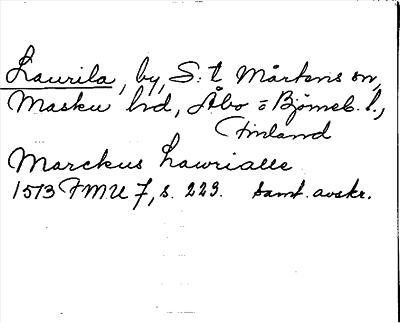 Laurila, by, S:t Mårtens sn,
Masku hd, Åbo o Björneb. l.,
Finland
Marckus Lawrialle
1513 FMU 7, s. 223. Samt. avskr.